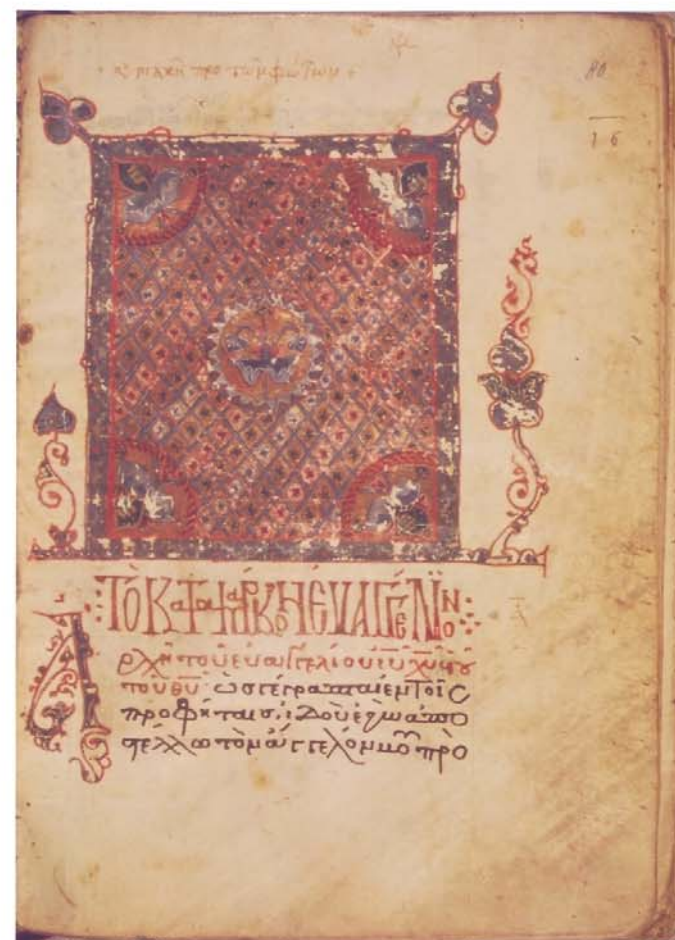 κυριακὴ πρὸ τῶν φώτων
80
16
ΤΟ ΚΑΤΑ ΜΑΡΚΟΝ ΕΥΑΓΓΕΛΙΟΝ
Ἀρχὴ τοῦ εὐαγγελίου ιυ χυ υυ
τοῦ θυ· ὡς γέγραπται ἐν τοῖς
προφήταις, ἰδοὺ ἐγὼ ἀπο
στέλλω τὸν ἄγγελόν μου πρὸ